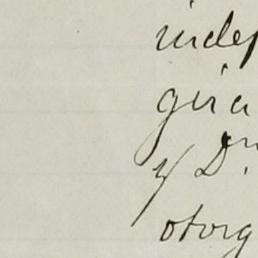 indep
gira
y D.
otorg